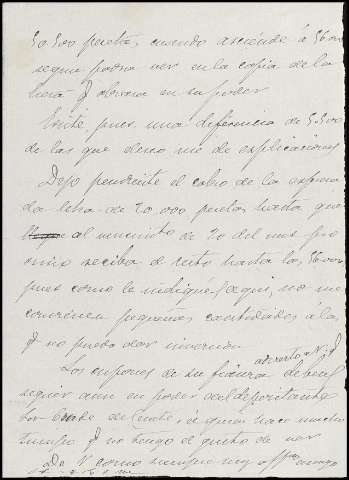 50.500 pesetas, cuando asciende á 56.000
segun podra ver en la copia de la
letra q obrara en su poder
Existe, pues una diferencia de 5.500
de las que deseo me de esplicaciones
Dejo pendiente el cobro de la espresa
da letra de 20.000 pesetas hasta que
al vencimto de 20 del mes pro
ximo reciba el resto hasta las 56.000
pues como le indiqué aqui, no me
convienen pequeñas cantidades á las
q no puedo dar inversion
Los cupones de su fianza deberan
advierto á V. q
seguir aun en poder del depositante
Conde de á quien hace mucho
tiempo q no tengo el gusto de ver
de V. como siempre muy affmo amigo